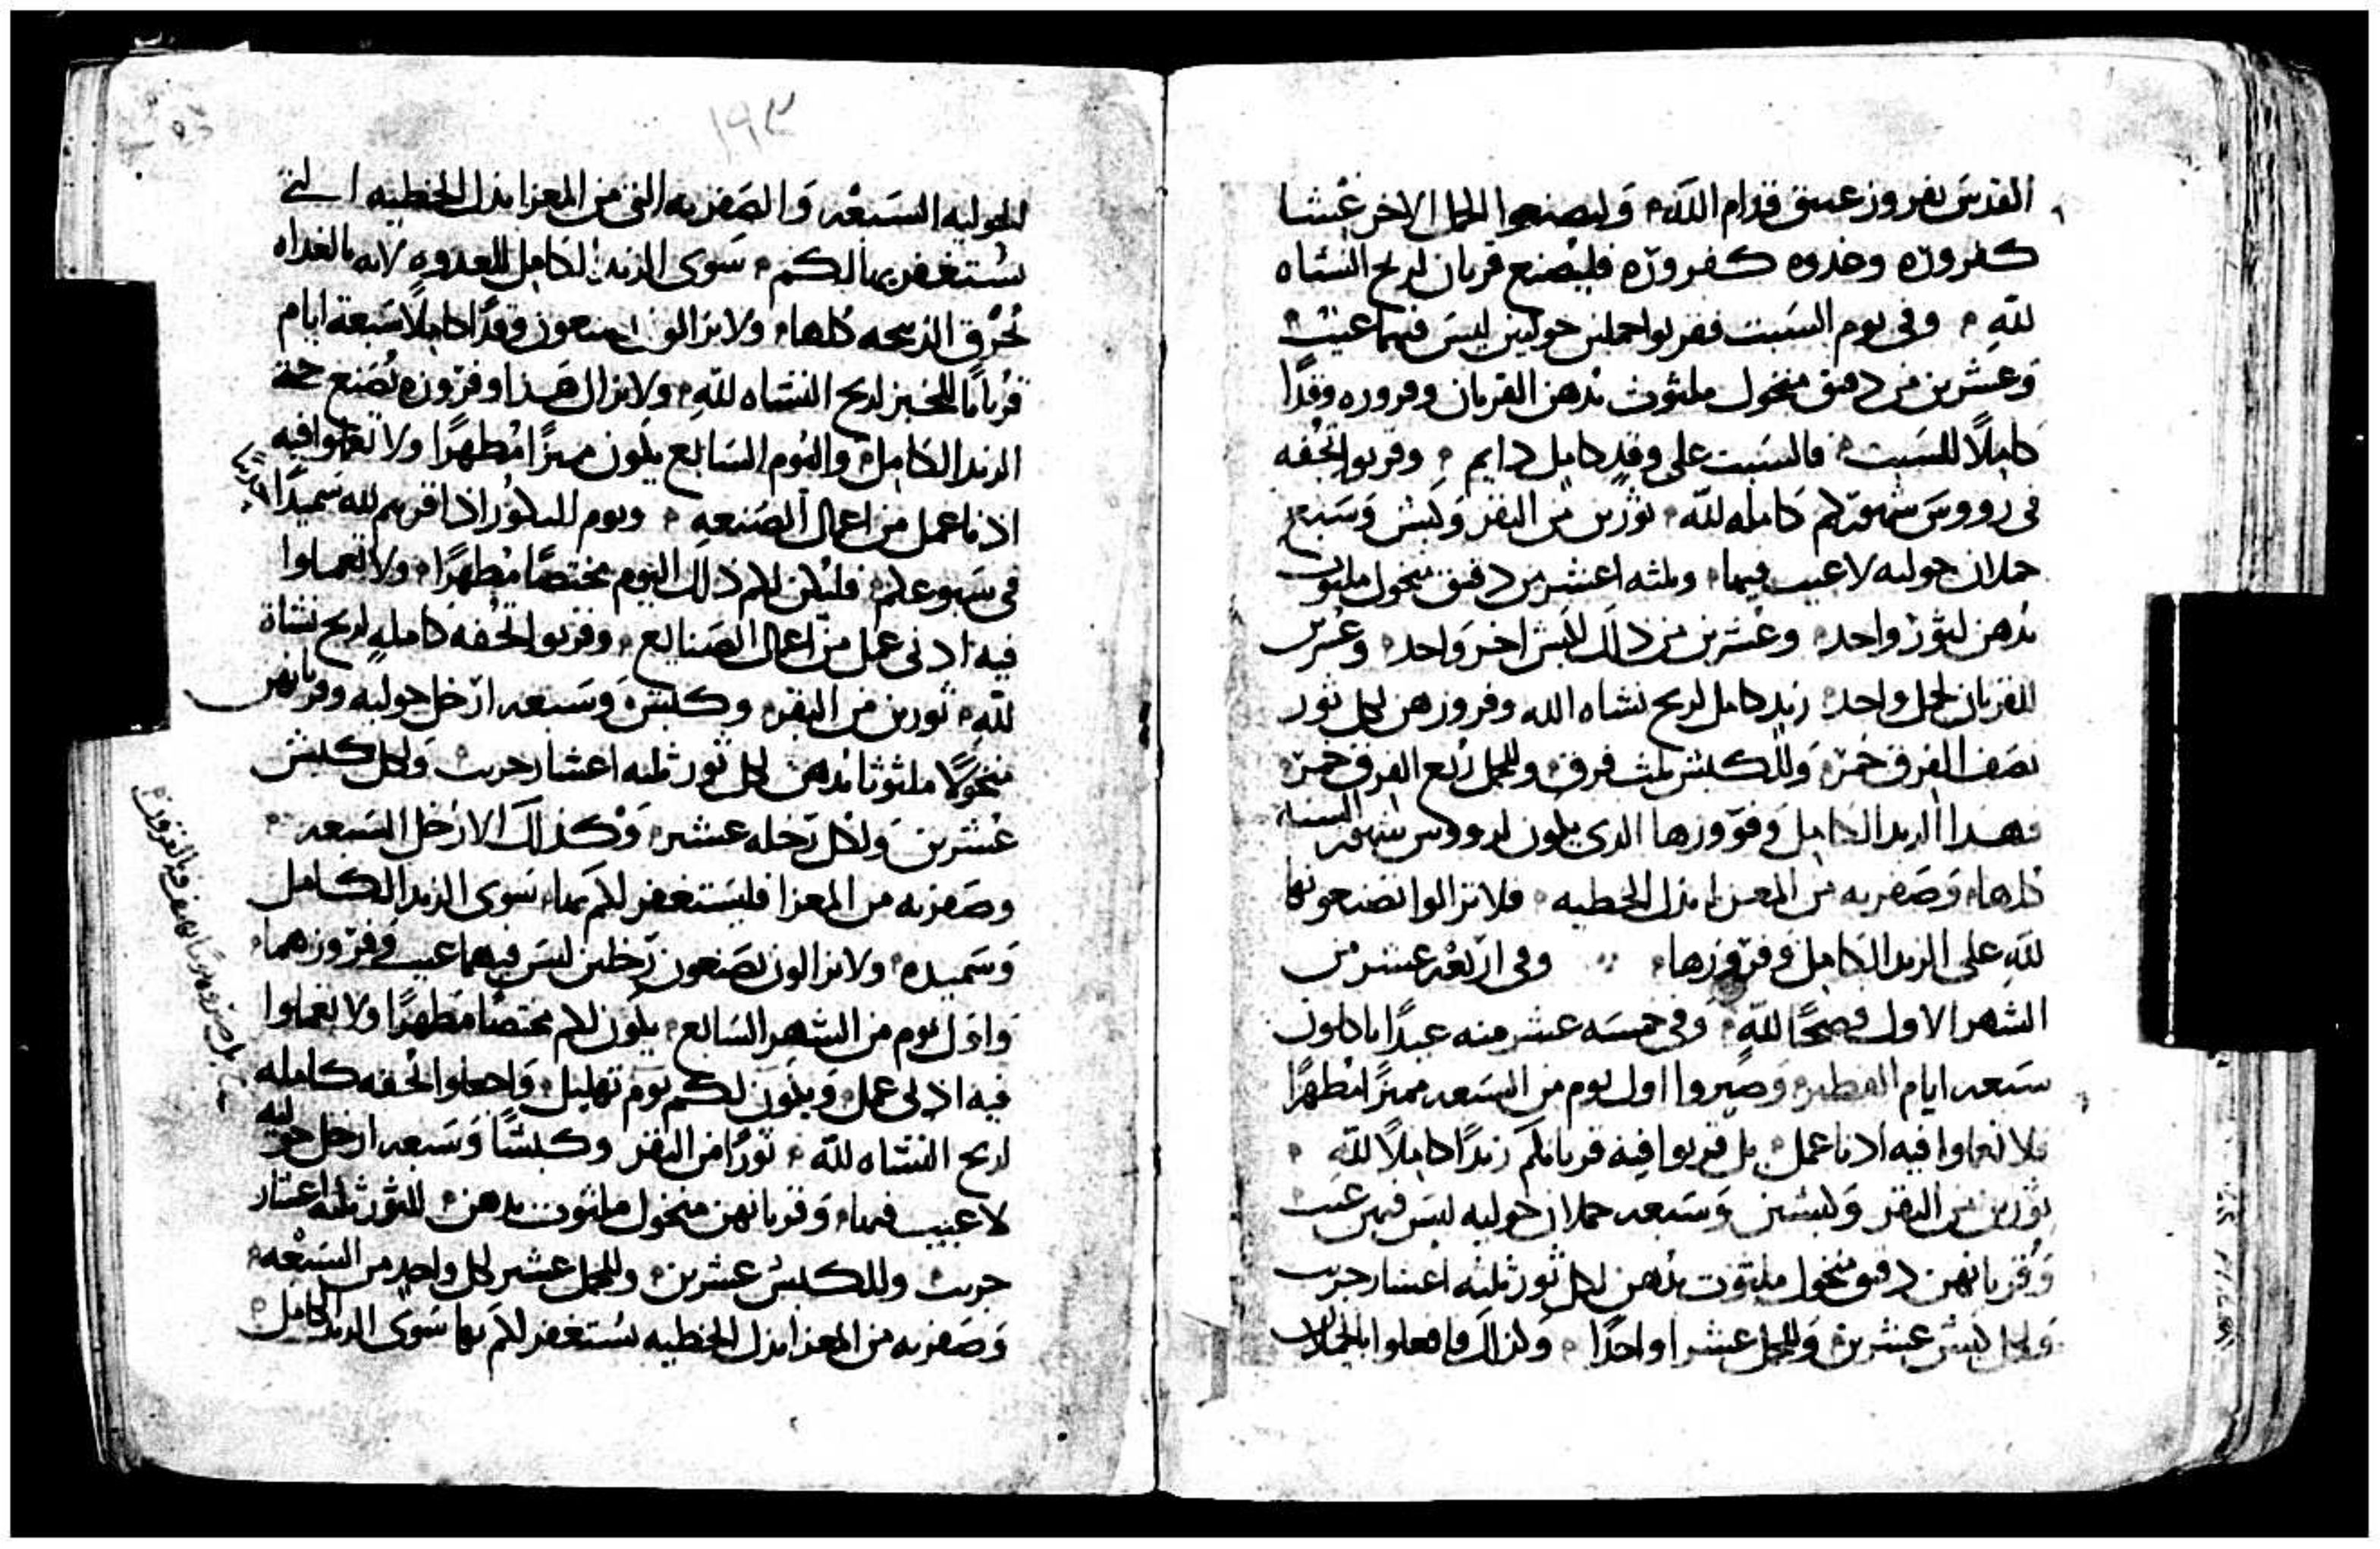 القدس بفروز عتيق قدام الله وليصنعوا الحمل الاخر عشا
كفروزه وخدوه كفروزه فليصنع قربان لريح النشاه
لله وفي يوم السبت فقربوا حملين حوليين ليس فيهما عيب
وعشرين من دقيق منخول ملثوث بدهن القربان وفروزه وقدًا
كاملًا للسبت فالسبت على وقد كامل دايم وقربوا تحفه
في رووس شهوركم كامله لله ثورين من البقر وكبش وسبع
حملان حوليه لا عيب فيها وثلثه اعشر من دقيق منخول ملثوث
بدهن لثور واحد وعشرين من ذلك لكبش اخر واحد وعشرين
للقربان لحمل واحد زبد كامل لريح نشاه الله وفروزهن لكل ثور
نصف الفرق خمر وللكبش ثلث فرق وللحمل ربع الفرق خمر
فهذا الزبد الكامل وفروزها الذي يكون لرووس شهور السنه
كلها وصفريه من المعزا بدل الخطيه فلا تزالوا تصنعونها
لله على الزبد الكامل وفروزها وفي اربعه عشر من
الشهر الاول فصحًا لله وفي خمسه عشر منه عيدًا ياكلون
سبعه ايام الفطير وصيروا اول يوم من السبعه مميزًا مطهرًا
فلا تعملوا فيه ادنا عمل بل قربوا فيه قربانكم زبدًا كاملًا لله
ثورين من البقر وكبشين وسبعه حملان حوليه ليس فيهن عيب
وقربانهن دقيق منخول ملثوث بدهن لكل ثور ثلثه اعشار جريب
ولكل كبش عشرين وللحمل عشرا واحدًا وكذلك فافعلوا بالحملان
الحوليه السبعه والصفريه التي من المعزا بدل الخطيه التي
يستغفر بها لكم سوى الزبد الكامل للغدوه لانه بالغداه
تحرق الذبيحه كلها ولا يزالون يصنعون وقدًا كاملًا سبعة ايام
قربانًا للخبز لريح النشاه لله ولا يزال هذا وفروزه يصنع
الزبد الكامل واليوم السابع يكون مميزًا مطهرًا ولا تعملوا فيه
ادنا عمل من اعمال الصنعه ويوم البكور اذا قربتم لله سميدًا جديدًا
في سبوعكم فليكن لكم ذلك اليوم مختصًا مطهرًا ولا تعملوا
فيه ادنى عمل من اعمال الصنايع وقربوا تحفه كامله لريح نشاه
لله ثورين من البقر وكبش وسبعه ارخل حوليه وقربانهن
منخولًا ملثوثا بدهن لكل ثور ثلثه اعشار جريب ولكل كبش
عشرين ولكل رخله عشر وكذلك الارخل السبعه
وصفريه من المعزا فليستغفر لكم بها سوى الزبد الكامل
وسميده ولا يزالون يصنعون رخلين ليس فيهما عيب وفروزهما
واول يوم من الشهر السابع يكون لكم مختصًا مطهرًا ولا تعملوا
فيه ادنى عمل ويكون لكم يوم تهليل واجعلوا تحفه كامله
لريح النشاه لله ثورًا من البقر وكبشًا وسبعه ارخل حوليه
لا عيب فيها وقربانهن منخول ملثوث بدهن للثور ثلثه اعشار
جريب وللكبش عشرين وللحمل عشر لكل واحد من السبعه
وصفريه من المعزا بدل الخطيه يستغفر لكم بها سوى الزبد الكامل
١٩٣